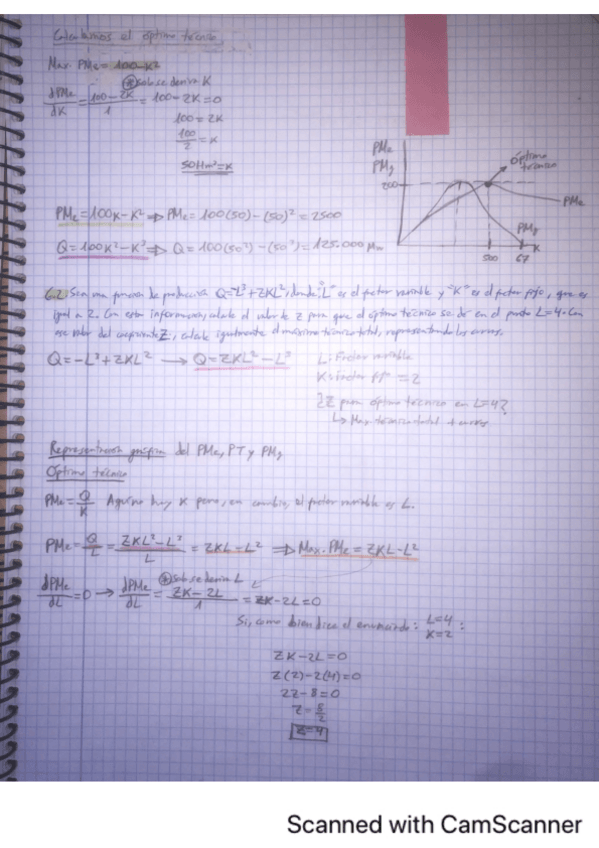 Calculamos el óptimo técnico
Max. PMe = 100-K²
* solo se deriva K
dPMe/dK = 100-2K/1 = 100-2K=0
100=2K
100/2 = K
50Hm²=K
PMe
PMg
óptimo técnico
200
PMe
PMg
K
500
67
PMe=100K-K² ⇒ PMe=100(50)-(50)²=2500
Q=100K²-K³ ⇒ Q=100(50²)-(50³)=125.000
6.2 Sea una función de producción Q=-L³+ZKL², donde "L" es el factor variable y "K" es el factor fijo, que es
igual a 2. Con esta información, calcule el valor de z para que el óptimo técnico se dé en el punto L=4. Con
ese valor del coeficiente Z, calcule igualmente el máximo técnico total, representando las curvas.
Q=-L³+ZKL² → Q=ZKL²-L³
L: Factor variable
K: Factor fijo = 2
¿Z para óptimo técnico en L=4?
↳ Max técnico total + curvas
Representación gráfica del PMe, PT y PMg
Óptimo técnico
PMe=Q/K Aquí no hay K pero, en cambio, el factor variable es L.
PMe=Q/L=ZKL²-L³/L=ZKL-L² ⇒ Max. PMe=ZKL-L²
* solo se deriva L
dPMe/dL=0 → dPMe/dL=ZK-2L/1=ZK-2L=0
Si, como bien dice el enunciado: L=4 K=2 :
ZK-2L=0
Z(2)-2(4)=0
2Z-8=0
Z=8/2
Z=4
Scanned with CamScanner